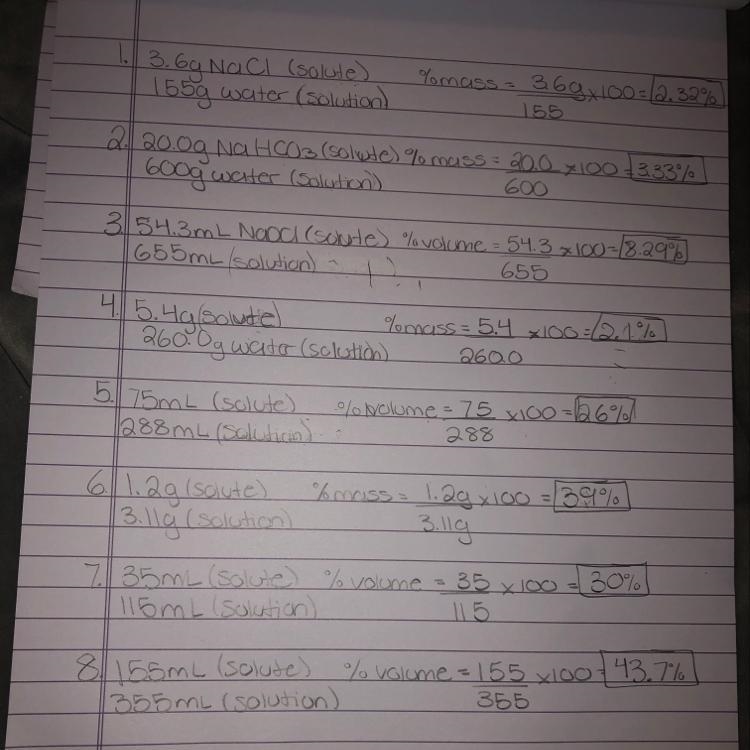 1. 3.6g NaCl (solute) %mass = 3.6g x100 = 2.32%
155g water (solution) 155
2. 20.0g NaHCO3 (solute) %mass = 20.0 x100 = 3.33%
600g water (solution) 600
3. 54.3mL NaOCl (solute) %volume = 54.3 x100 = 8.29%
655mL (solution) 655
4. 5.4g (solute) %mass = 5.4 x100 = 2.1%
260.0g water (solution) 260.0
5. 75mL (solute) %volume = 75 x100 = 26%
288mL (solution) 288
6. 1.2g (solute) %mass = 1.2g x100 = 39%
3.11g (solution) 3.11g
7. 35mL (solute) %volume = 35 x100 = 30%
115mL (solution) 115
8. 155mL (solute) %volume = 155 x100 = 43.7%
355mL (solution) 355